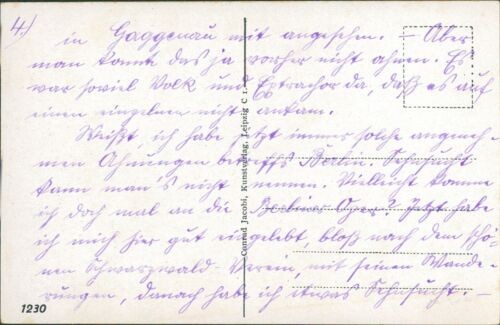 4.)
in Gaggenau mit angesehen. – Aber
man konnte das ja vorher nicht ahnen. Es
war soviel Volk und Extrachor da, daß es auf
einen einzelnen nicht ankam.
Weißt, ich habe jetzt immer solche angeneh-
men Ahnungen betreffs Berlin. Sehnsucht
kann man's nicht nennen. Vielleicht komme
ich doch mal an die Berliner Oper? Jetzt habe
ich mich hier gut eingelebt, bloß nach dem schö-
nen Schwarzwald-Verein, mit seinen Wande-
rungen, danach habe ich etwas Sehnsucht. –
Conrad Jacobi, Kunstverlag, Leipzig C 1.
1230